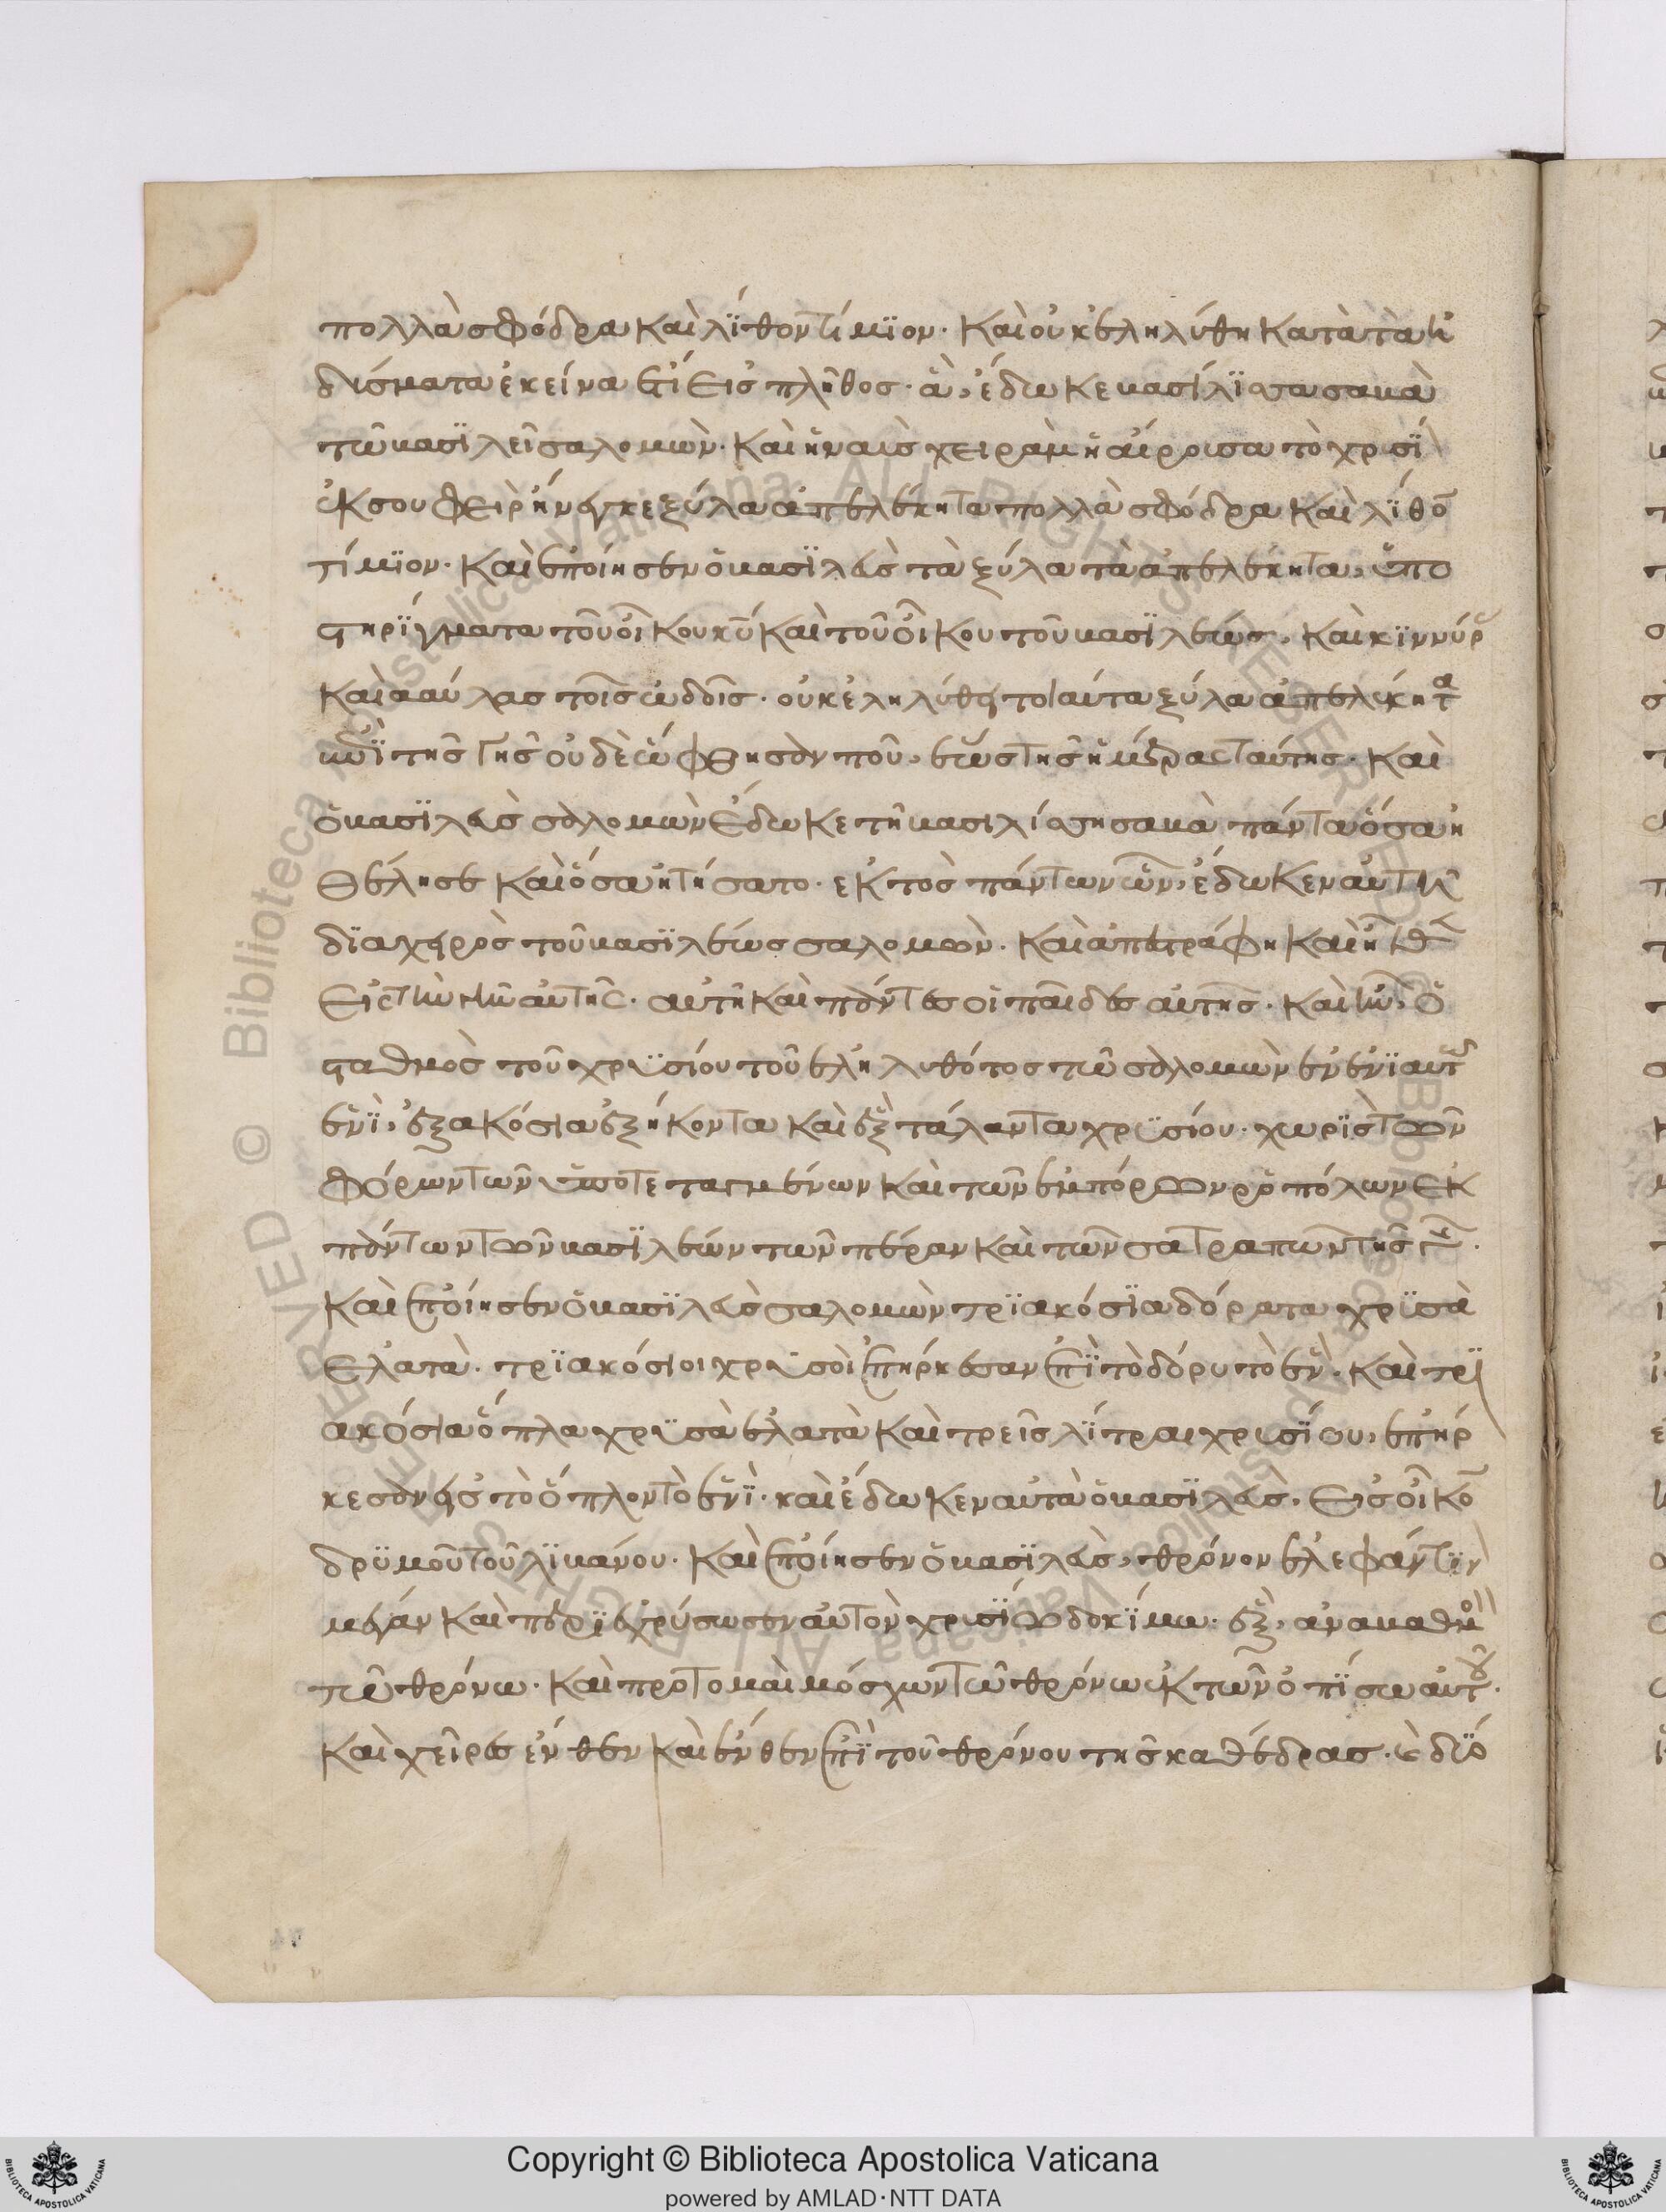 πολλὰ σφόδρα καὶ λίθον τίμιον. καὶ οὐκ ἐληλύθη κατὰ τὰ ἡ
δύσματα ἐκεῖνα ἔτι εἰς πλῆθος. ἃ ἔδωκε βασίλισσα σαβὰ
τῶ βασιλεῖ σαλομών. καὶ ἡ ναῦς χειρὰμ ἡ αἴρουσα τὸ χρυσί
ἐκ σουφεὶρ ἤνεγκε ξύλα ἀπελέκητα πολλὰ σφόδρα καὶ λίθο
τίμιον. καὶ ἐποίησεν ὁ βασιλεὺς τὰ ξύλα τὰ ἀπελέκητα, ὑπο
στηρίγματα τοῦ οἴκου κυ καὶ τοῦ οἴκου τοῦ βασιλέως, καὶ κιννύρ
καὶ νάβλας τοῖς ὠδοῖς. οὐκ ἐληλύθει τοιαῦτα ξύλα ἀπελέκητα
ἐπὶ τῆς γῆς οὐδὲ ὤφθησάν που, ἕως τῆς ἡμέρας ταύτης. καὶ
ὁ βασιλεὺς σαλομὼν ἔδωκε τῆ βασιλίσση σαβὰ πάντα ὅσα ἠ
θέλησε καὶ ὅσα ἠτήσατο. ἐκτὸς πάντων ὧν, ἔδωκεν αὐτῆ
διὰ χειρὸς τοῦ βασιλέως σαλομών. καὶ ἀπεστράφη καὶ ἦλθεν
εἰς τὴν γῆν αὐτῆς. αὐτὴ καὶ πάντες οἱ παῖδες αὐτῆς. καὶ ἦν, ὁ
σταθμὸς τοῦ χρυσίου τοῦ ἐληλυθότος τῶ σαλομὼν ἐν ἐνιαυτῶ
ἑνὶ, ἑξακόσια ἑξήκοντα καὶ ἓξ τάλαντα χρυσίου. χωρὶς τῶν
φόρων τῶν ὑποτεταγμένων καὶ τῶν ἐμπόρων ροπόλων ἐκ
πάντων τῶν βασιλέων τῶν πέραν καὶ τῶν σατραπῶν τῆς γῆς.
καὶ ἐποίησεν ὁ βασιλεὺς σαλομὼν τριακόσια δόρατα χρυσᾶ
ἐλατὰ. τριακόσιοι χρυσοῖ ἐπήρκεσαν ἐπὶ τὸ δόρυ τὸ ἓν. καὶ τρι
ακόσια ὅπλα χρυσᾶ ἐλατὰ καὶ τρεῖς λίτραι χρυσίου, ἐπήρ
κεσαν εἰς τὸ ὅπλον τὸ ἓν. καὶ ἔδωκεν αὐτὰ ὁ βασιλεὺς, εἰς οἶκο
δρυμοῦ τοῦ λιβάνου. καὶ ἐποίησεν ὁ βασιλεὺς, θρόνον ἐλεφάντιν
μέγαν καὶ περιεχρύσωσεν αὐτὸν χρυσίω δοκίμω. ἓξ, ἀναβαθμοὶ
τῶ θρόνω. καὶ προτομαὶ μόσχων τῶ θρόνω ἐκ τῶν ὀπίσω αὐτοῦ.
καὶ χεῖρες ἔνθεν καὶ ἔνθεν ἐπὶ τοῦ θρόνου τῆς καθέδρας. καὶ δύο
Copyright © Biblioteca Apostolica Vaticana
powered by AMLAD·NTT DATA